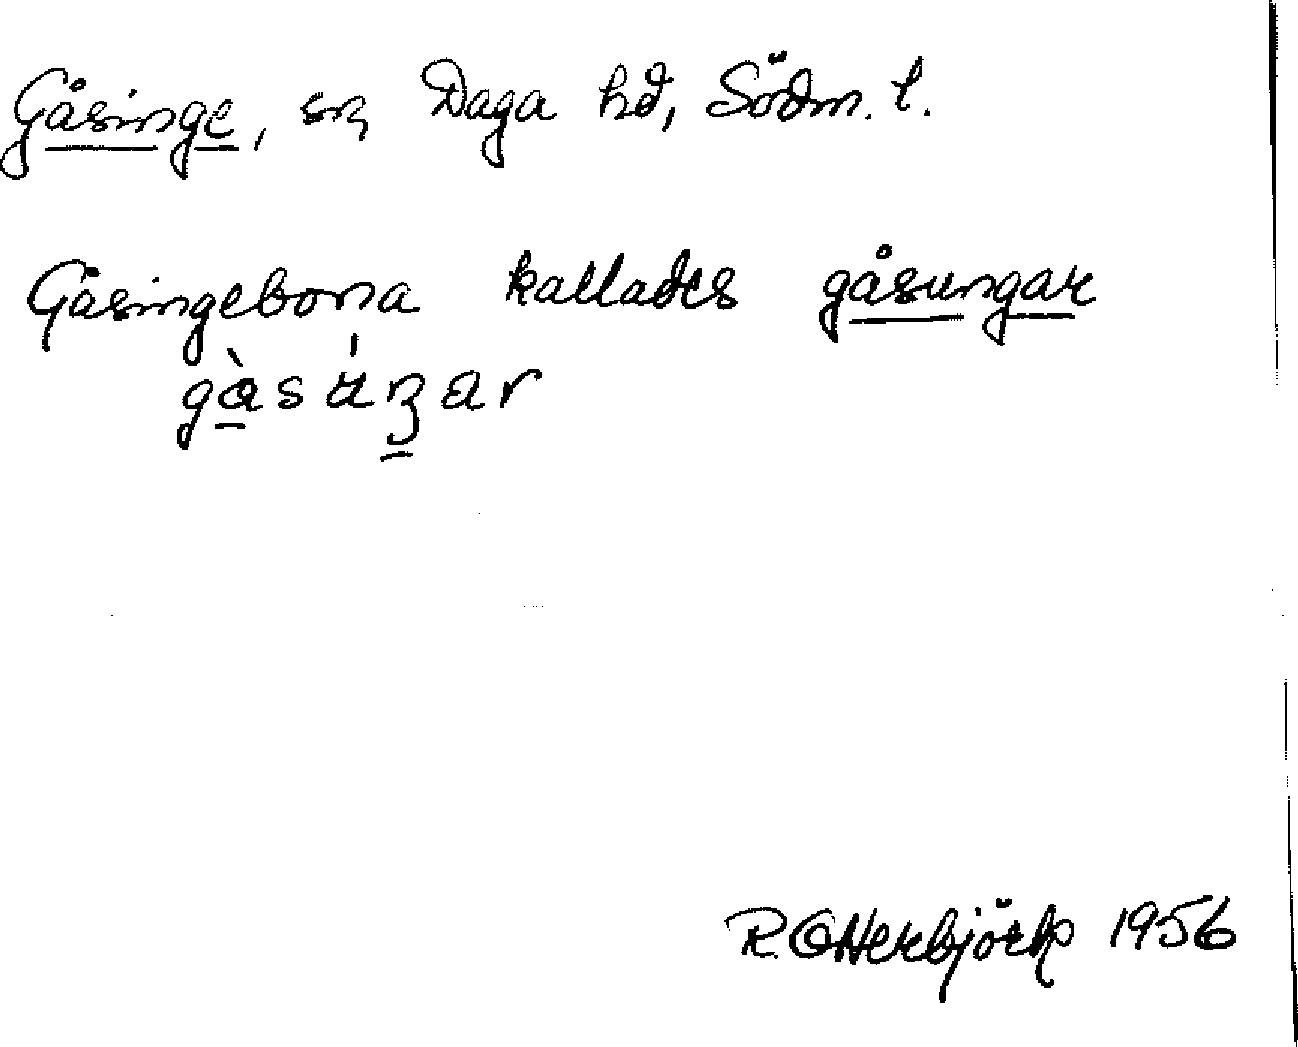 Gåsinge, sn, Daga hd, Södm. l.
Gåsingeborna kallades gåsungar
R. Otterbjörk 1956